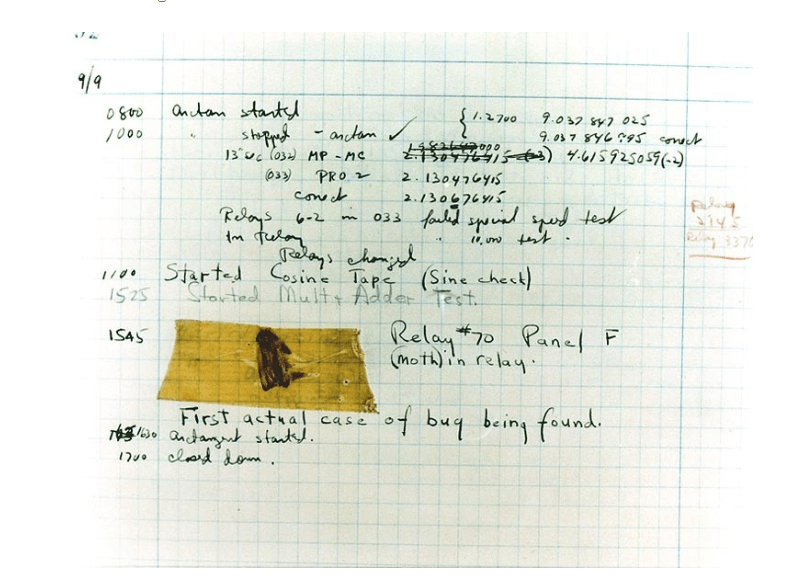 9/9
0800 arctan started { 1.2700 9.037 847 025
1000 " stopped - arctan ✓ 9.037 846 995 correct
13"uc (032) MP - MC 2.130476415 4.615925059(-2)
(033) PRO 2 2.130476415
correct 2.130676415
Relays 6-2 in 033 failed special speed test
In Relay " 10,000 test.
Relays changed
1100 Started Cosine Tape (Sine check)
1525 Started Mult + Adder Test.
1545 Relay #70 Panel F
(moth) in relay.
First actual case of bug being found.
1630 arctangent started.
1700 closed down.
Relay
2145
Relay 3370